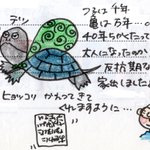 デン
つるは千年
亀は万年…の
40年ちかくたって
大人になったのか
反抗期なのか
家出しました
ヒョッコリ かえってきて
くれますように…